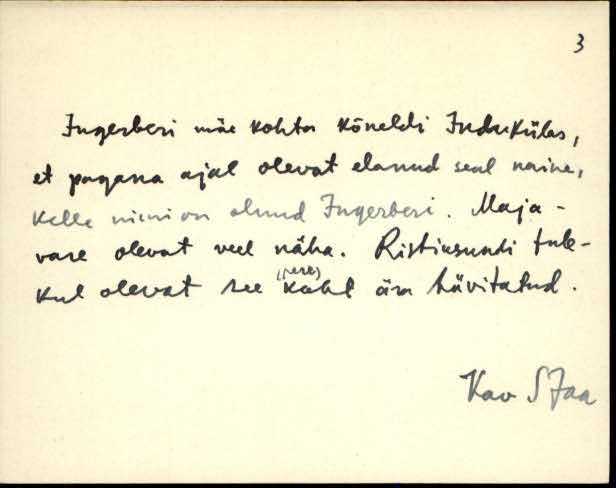 3
Ingerberi mäe kohta kõneldi Indu külas,
et pagana ajal olevat elanud seal naine,
kelle nimi on olnud Ingerberi. Maja-
vare olevat veel näha. Ristiusundi tule-
(pere)
kul olevat see koht ära hävitatud.
Kav S Jaa